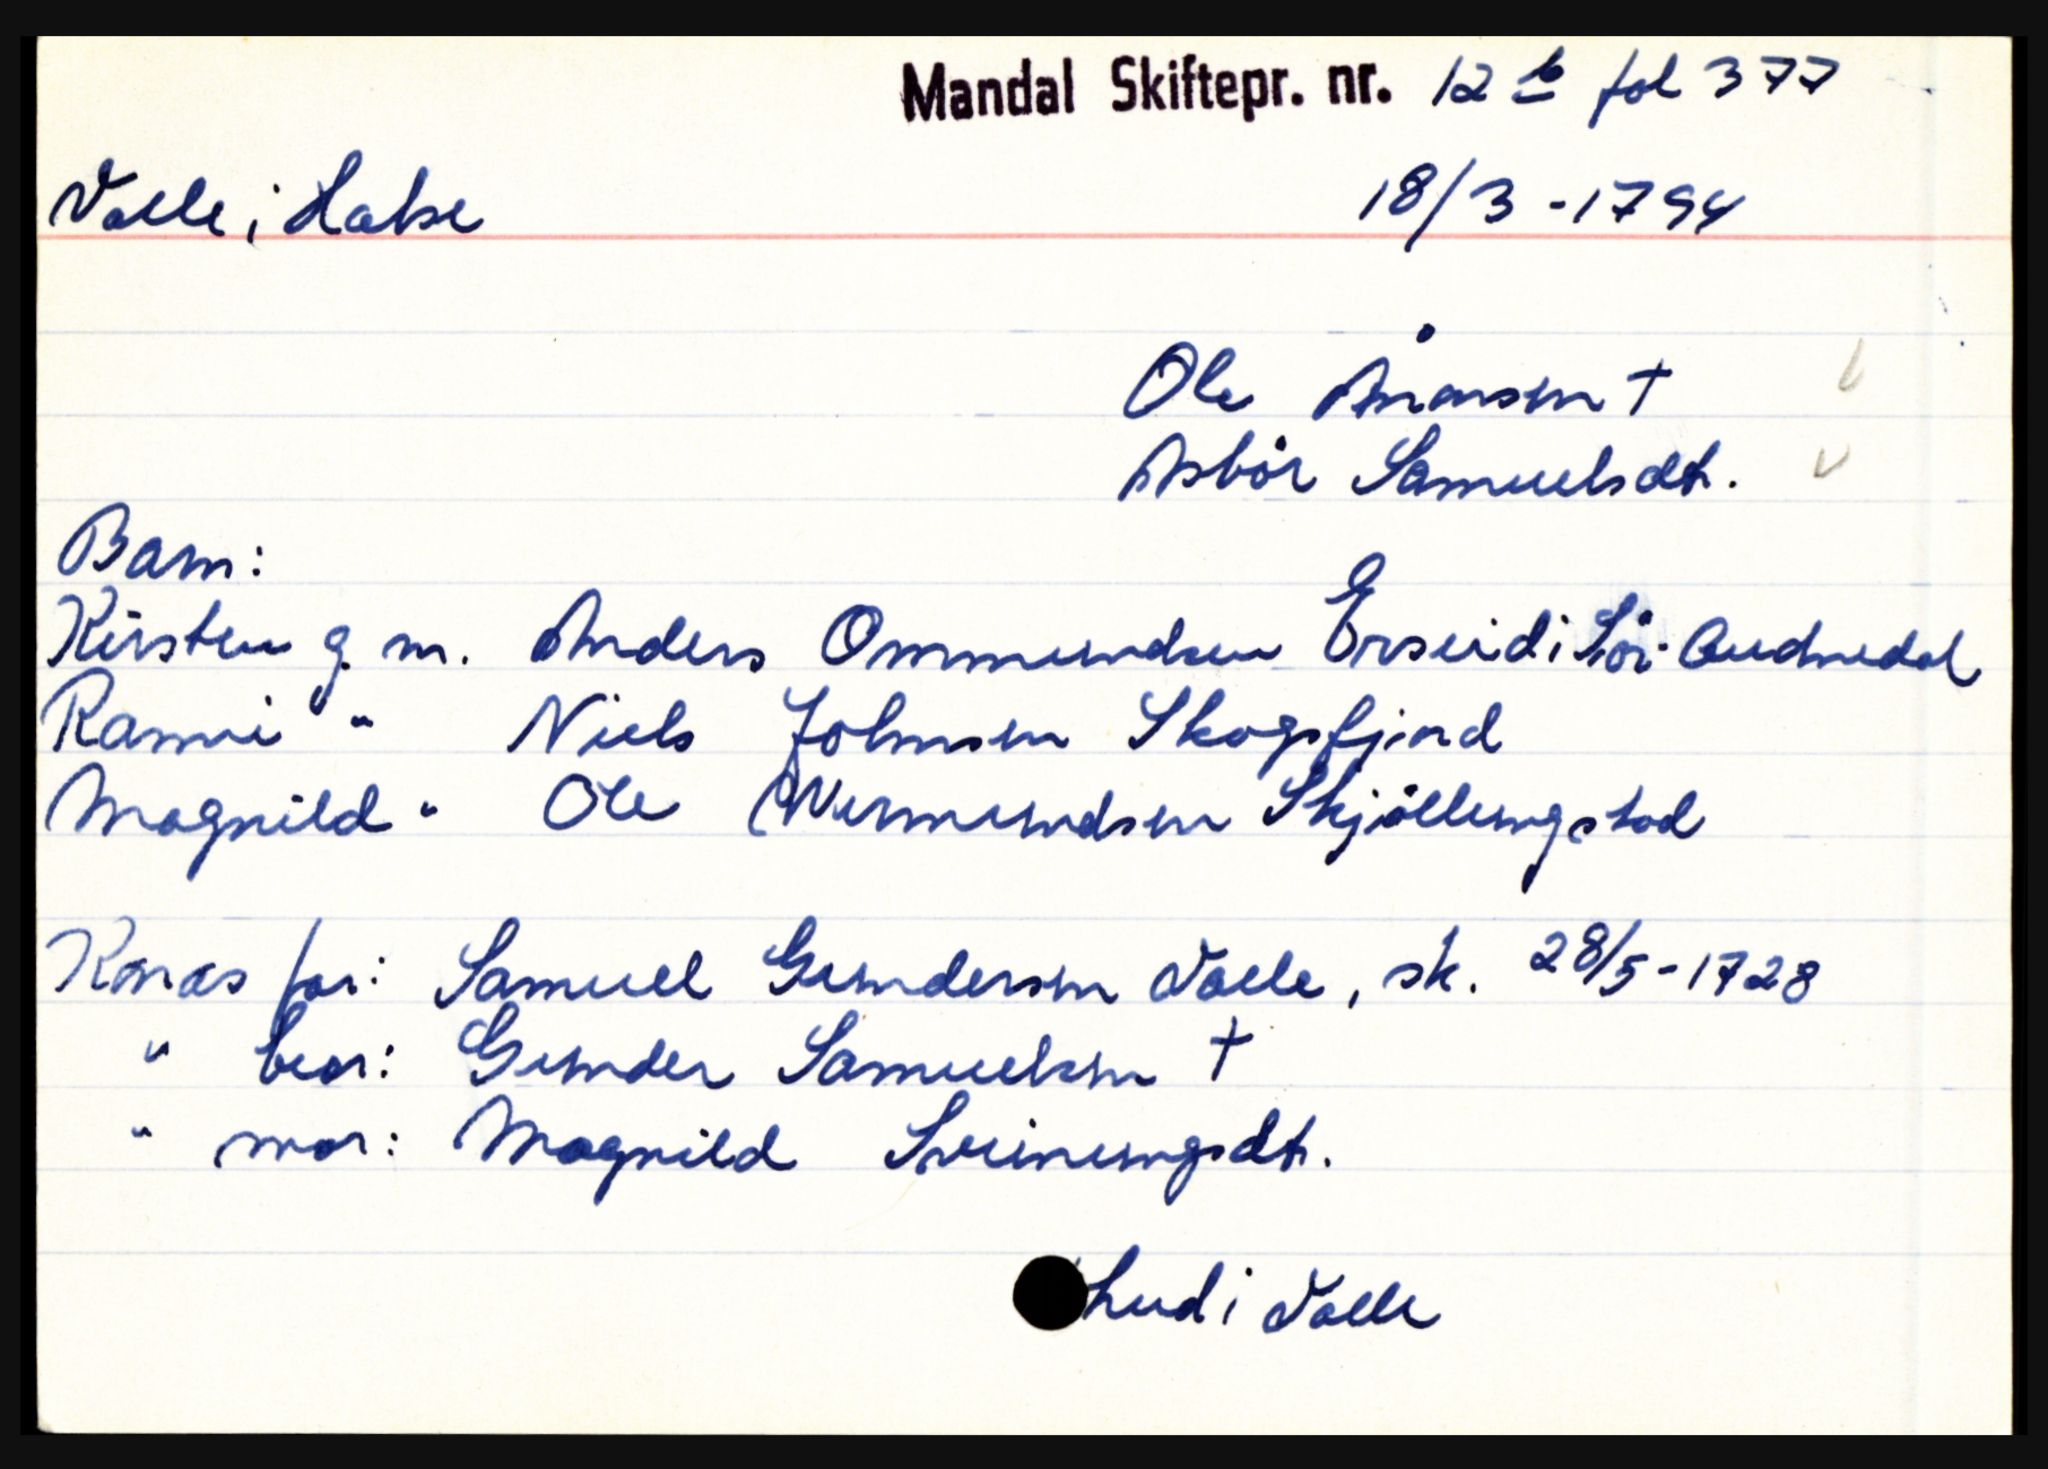 Mandal Skiftepr. nr. 12 b fol 377
Valle i Halse 18/3 - 1794
Ole Ånonsen †
Asbör Samuelsdt.
Barn:
Kirsten g. m. Anders Ommundsen Erseid i Sör-Audnedal
Ranvi " " Niels Johnsen Skogsfjord
Magnild " Ole Wermundsen Skjöllungstad
Konas far: Samuel Gundersen Valle, sk. 28/5 - 1728
" bror: Gunder Samuelsen †
" mor: Magnild Sveinungsdt.
Lud i Valle